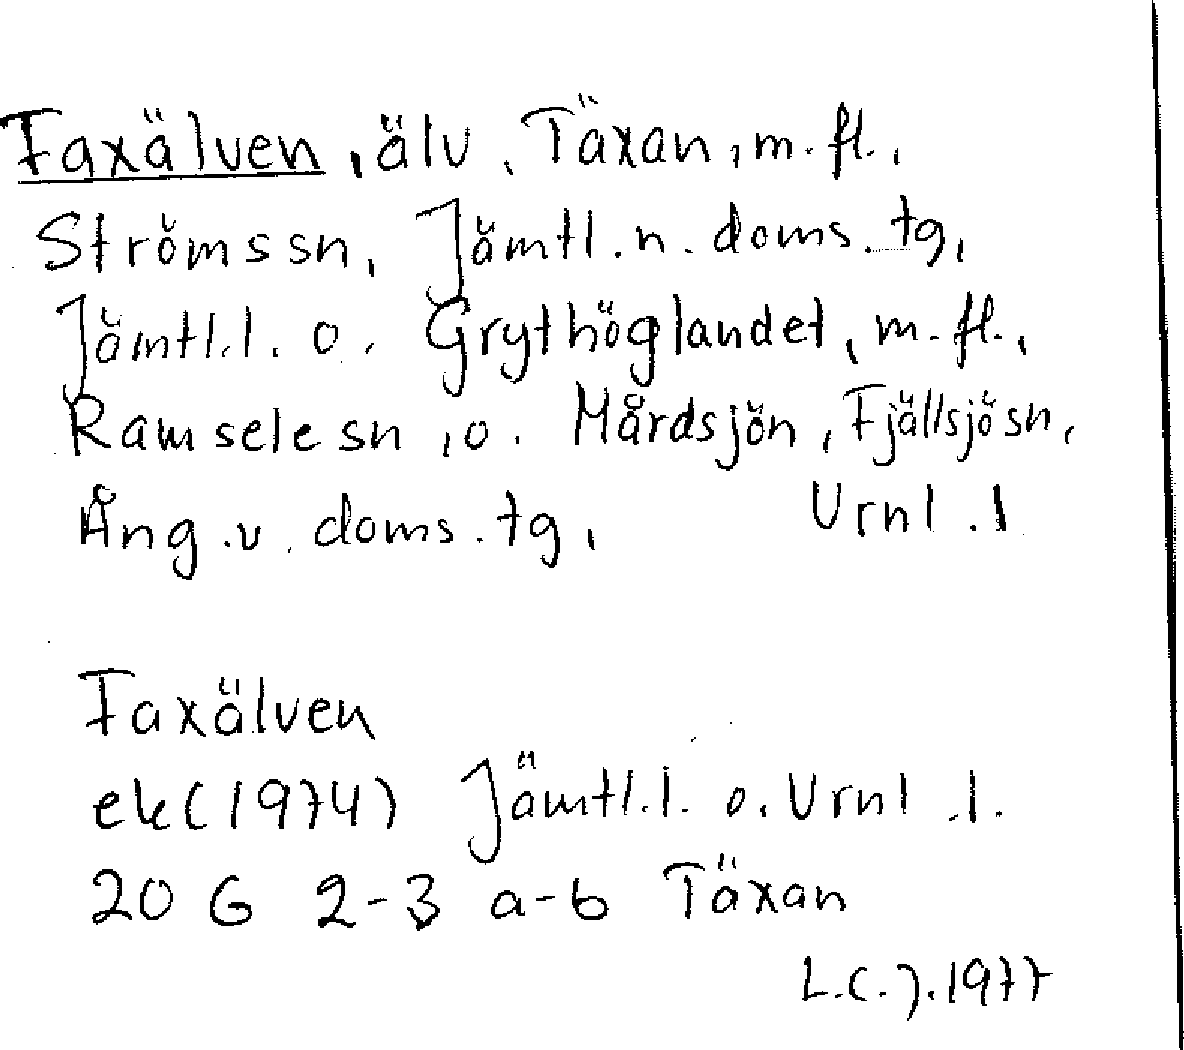 Faxälven, älv, Täxan, m.fl.,
Ströms sn, Jämtl.n.doms.tg,
Jämtl.l. o. Grythöglandet, m.fl.,
Ramsele sn, o. Mårdsjön, Fjällsjö sn,
Ång.v. doms.tg, Urnl.l
Faxälven
ek(1974) Jämtl.l. o. Urnl.l.
20 G 2-3 a-b Täxan
L.C.J.1977